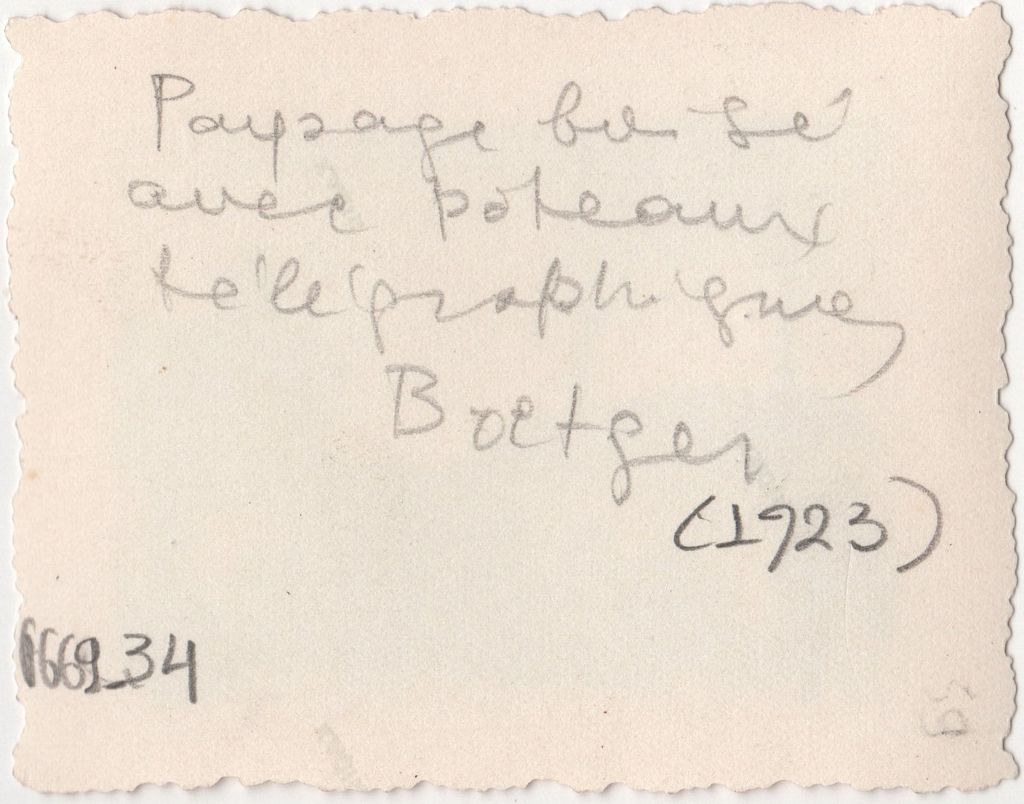 Paysage boisé
avec poteaux
télégraphique
Boetger
(1923)
669_34